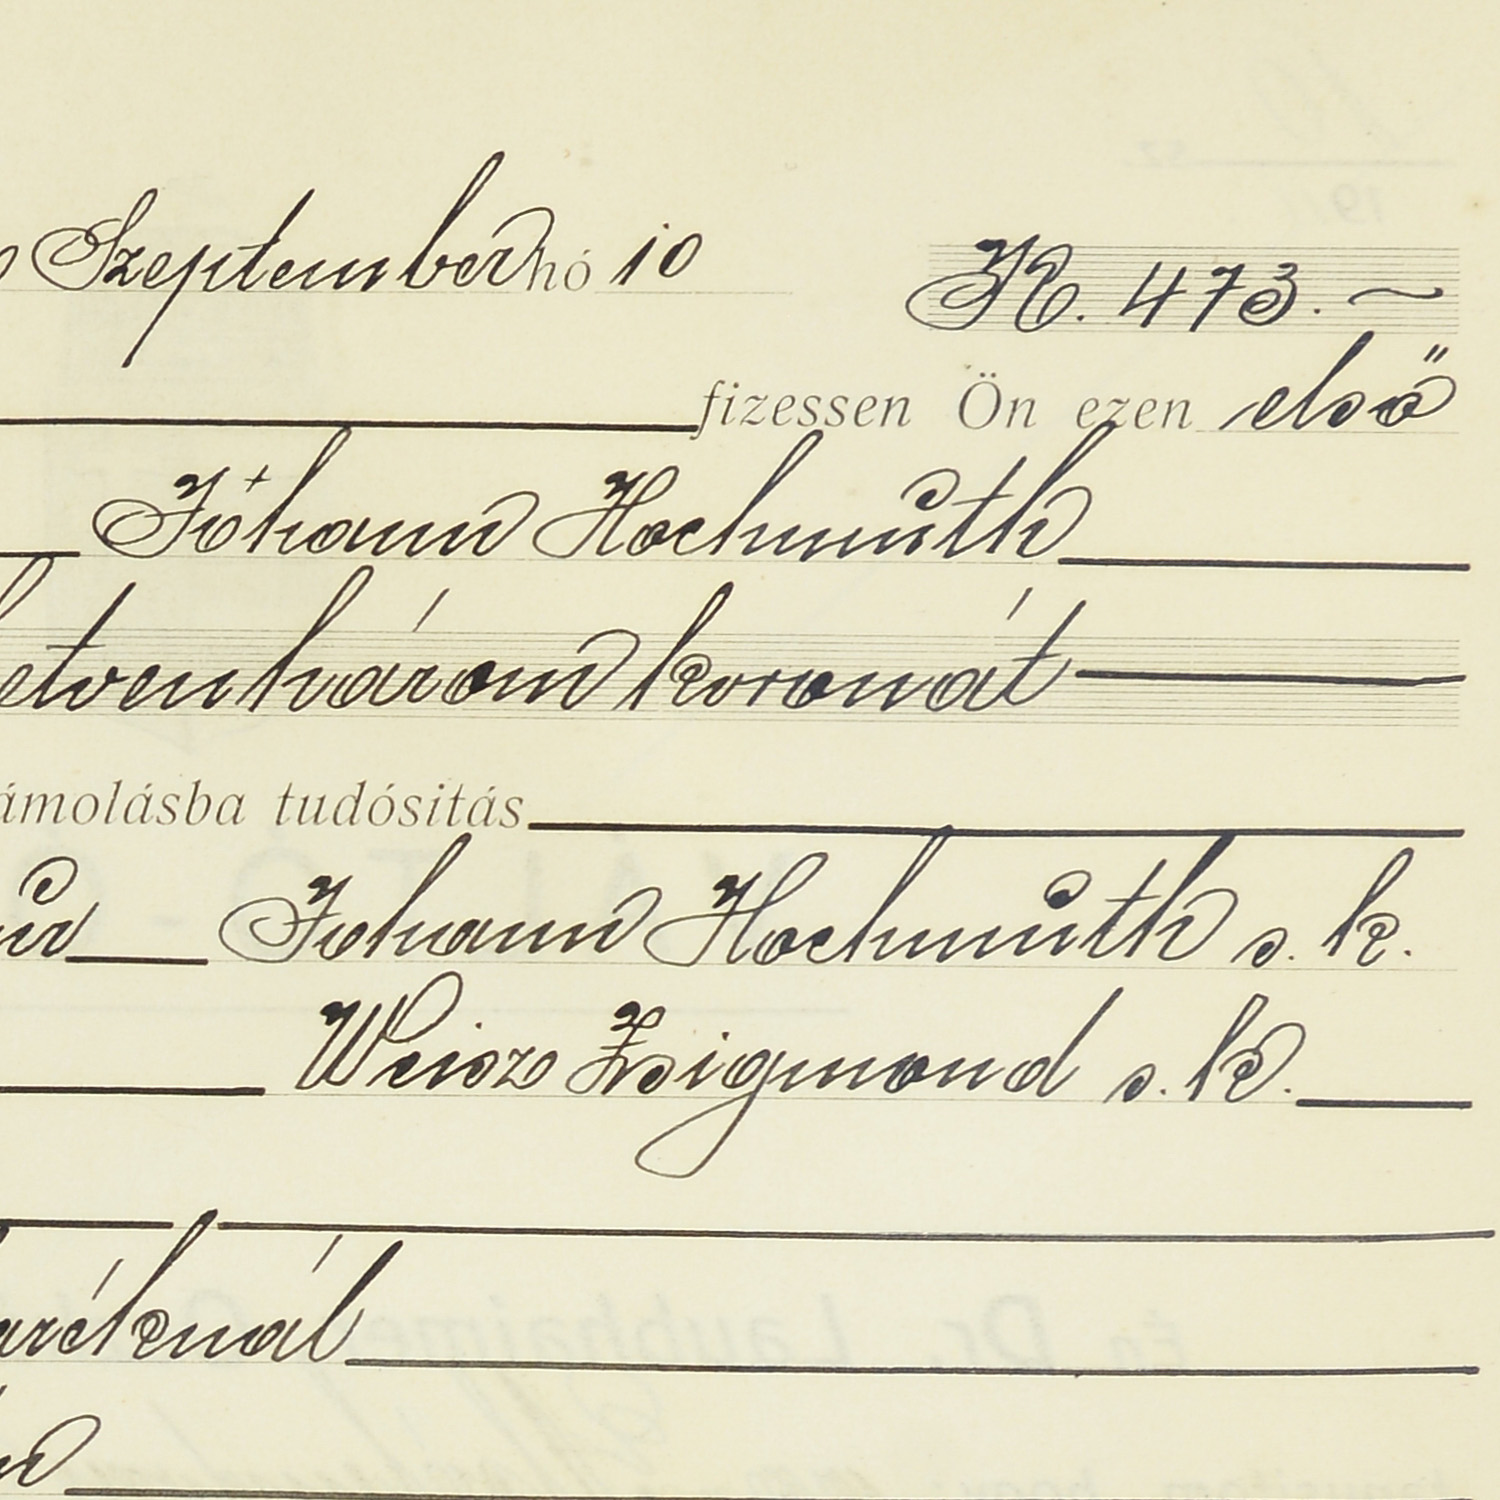 Szeptember hó 10 K. 473.~
fizessen Ön ezen első
Johann Hochmuth
etvenhárom koronát
ámolásba tudósitás
Johann Hochmuth s. k.
Weisz Zsigmond s. k.
aréknál